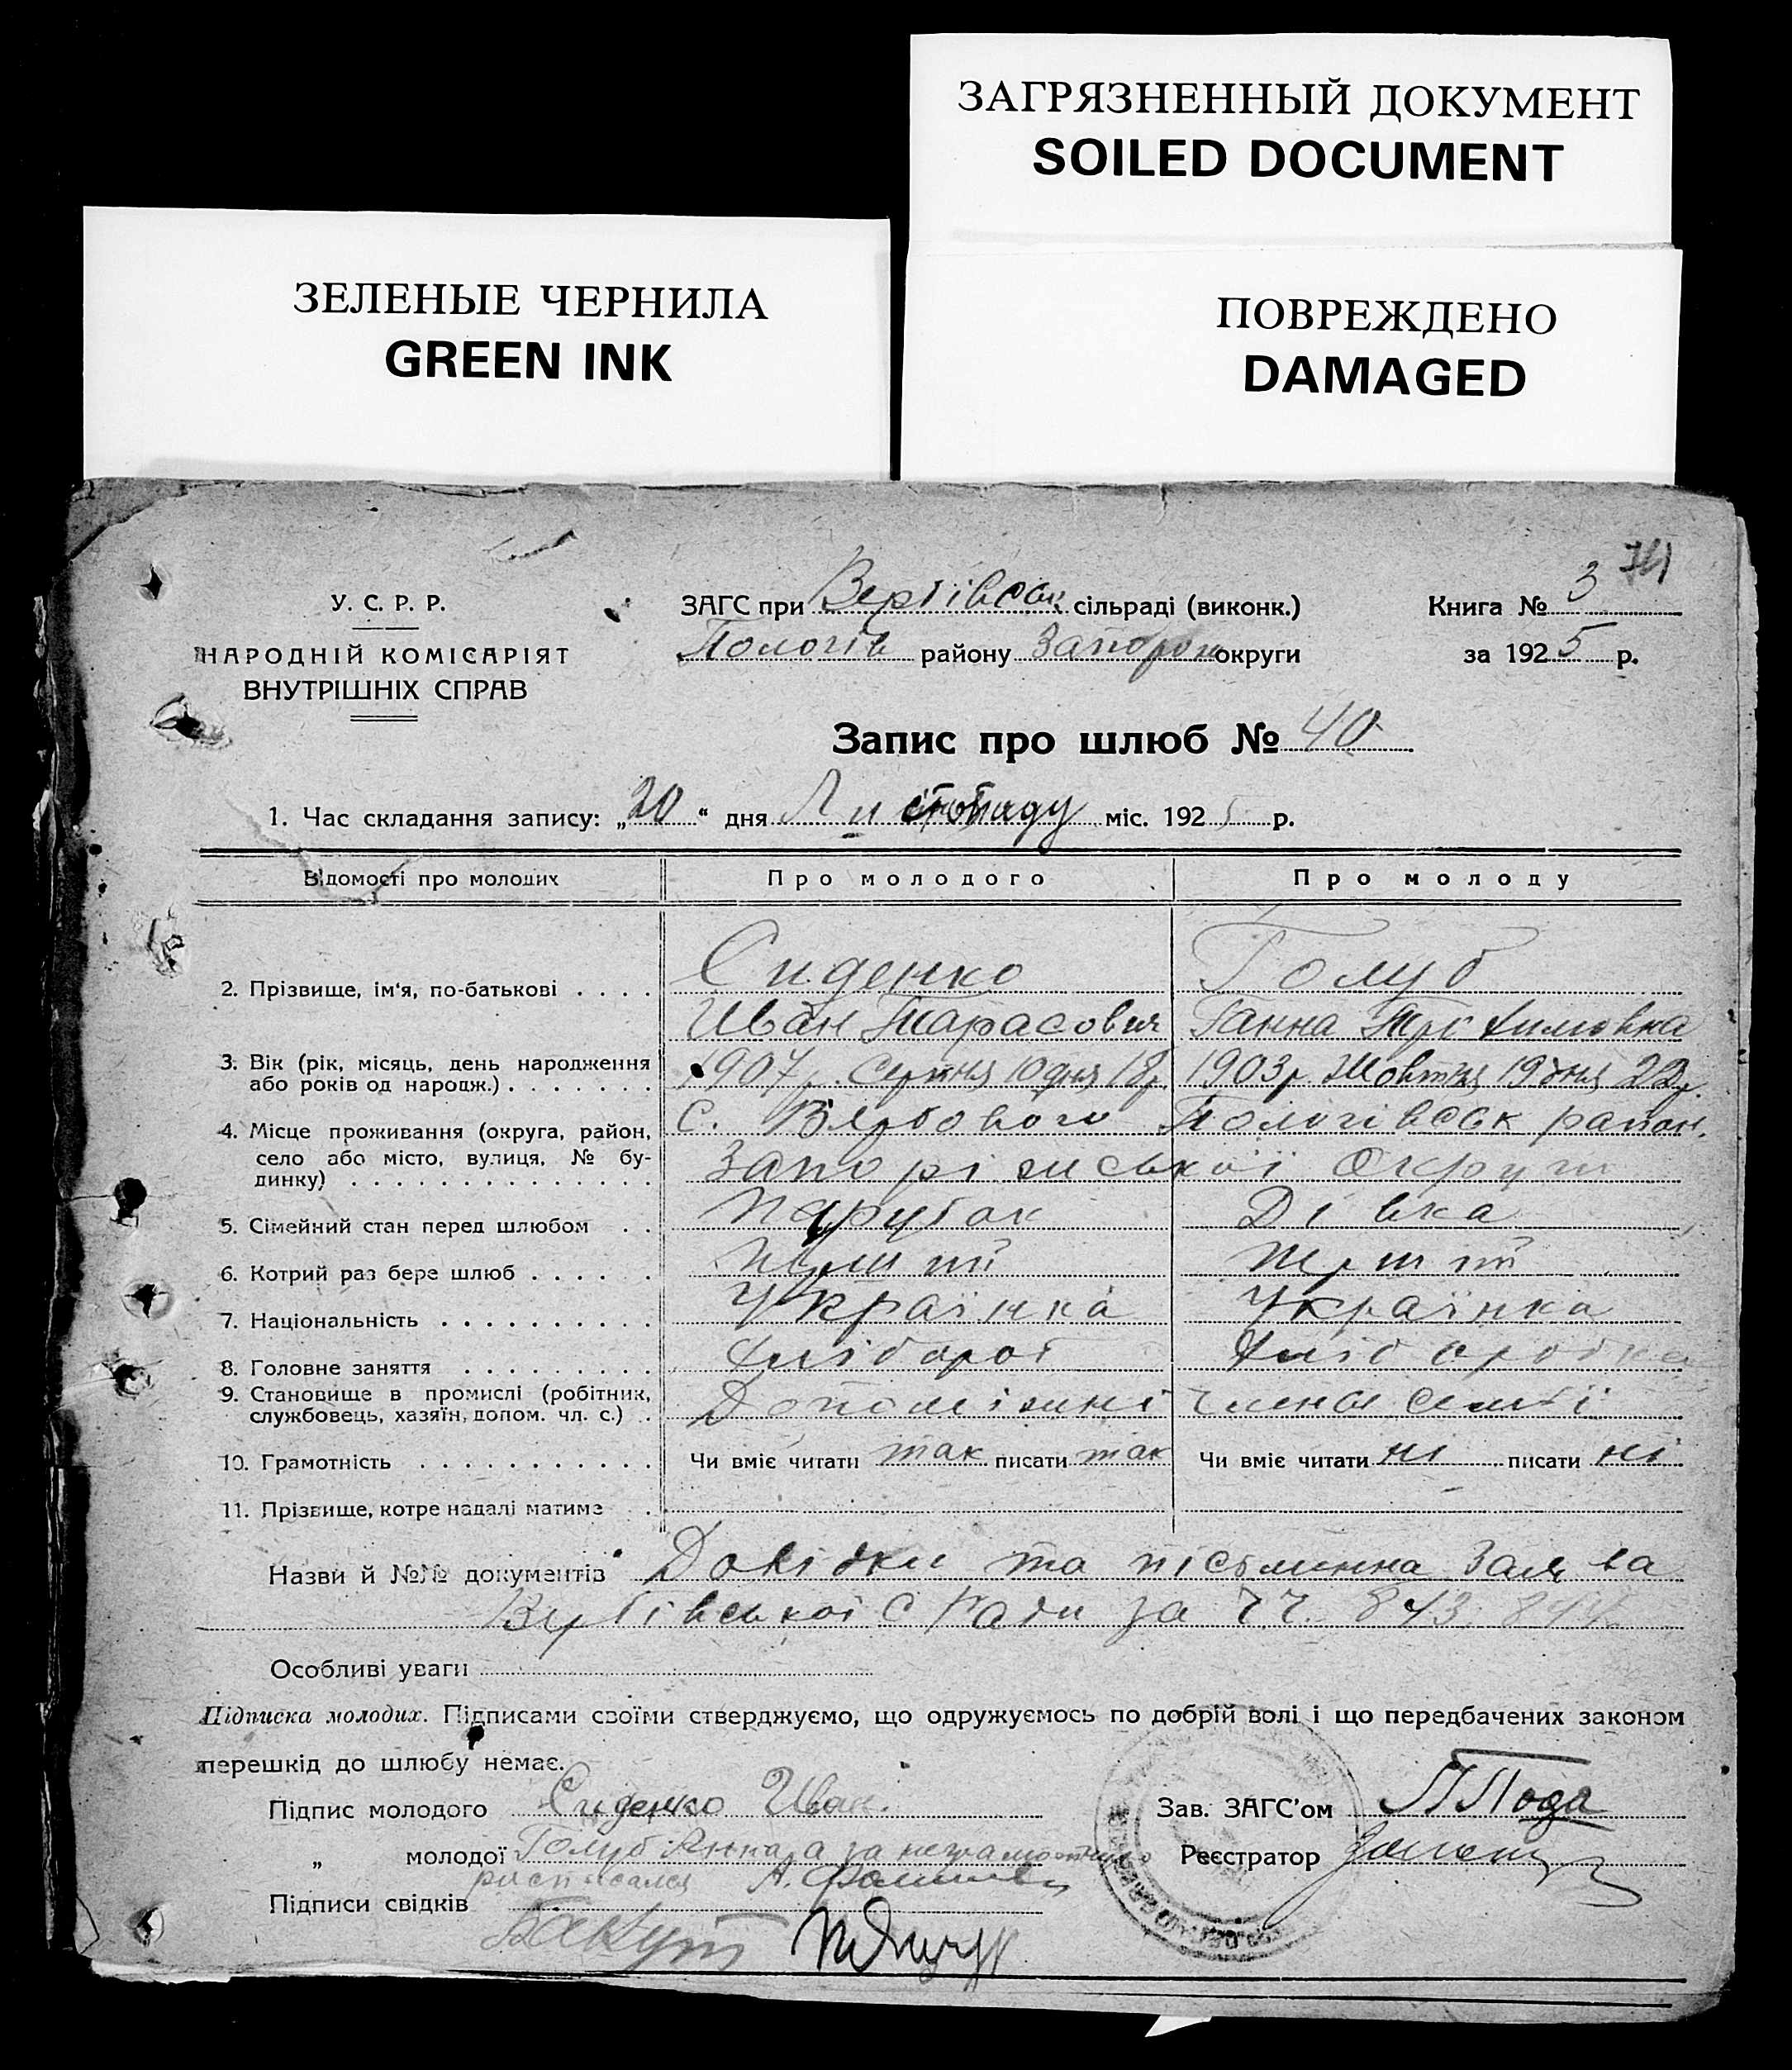 ЗАГРЯЗНЕННЫЙ ДОКУМЕНТ
SOILED DOCUMENT
ЗЕЛЕНЫЕ ЧЕРНИЛА
GREEN INK
ПОВРЕЖДЕНО
DAMAGED
74
У. С. Р. Р.
НАРОДНІЙ КОМІСАРІЯТ
ВНУТРІШНІХ СПРАВ
ЗАГС при сільраді (виконк.)
Пологів району Запорож округи
Книга № 3
за 1925 р.
Запис про шлюб № 40
1. Час складання запису: „20“ дня Листопаду міс. 1925 р.
Відомості про молодих Про молодого Про молоду
2. Прізвище, ім'я, по-батькові Сиденко Голуб
Иван Тарасович Ганна
3. Вік (рік, місяць, день народження або років од народж.) 1907 р. Серпня 10 дня 18 р. 1903 р. Жовтня 19 дня 22 р.
4. Місце проживання (округа, район, село або місто, вулиця, № будинку) С. Вярбового Пологівськ район.
Запоріжської Округи
5. Сімейний стан перед шлюбом Парубок Дівка
6. Котрий раз бере шлюб
7. Національність Українка Українка
8. Головне заняття Хлібороб Хліборобка
9. Становище в промислі (робітник, службовець, хазяїн, допом. чл. с.) Допоміжні члены семьї
10. Грамотність Чи вміє читати так писати так Чи вміє читати ні писати ні
11. Прізвище, котре надалі матиме
Назви й №№ документів Довідки та пісьминна Заява
Вербівської С Ради за ЧЧ. 843, 844
Особливі уваги
Підписка молодих. Підписами своїми стверджуємо, що одружуємось по добрій волі і що передбачених законом
перешкід до шлюбу немає.
Підпис молодого Сиденко Иван.
Зав. ЗАГС'ом
„ молодої Голуб Анна а за неграмотную
росписался А.
Реєстратор
Підписи свідків